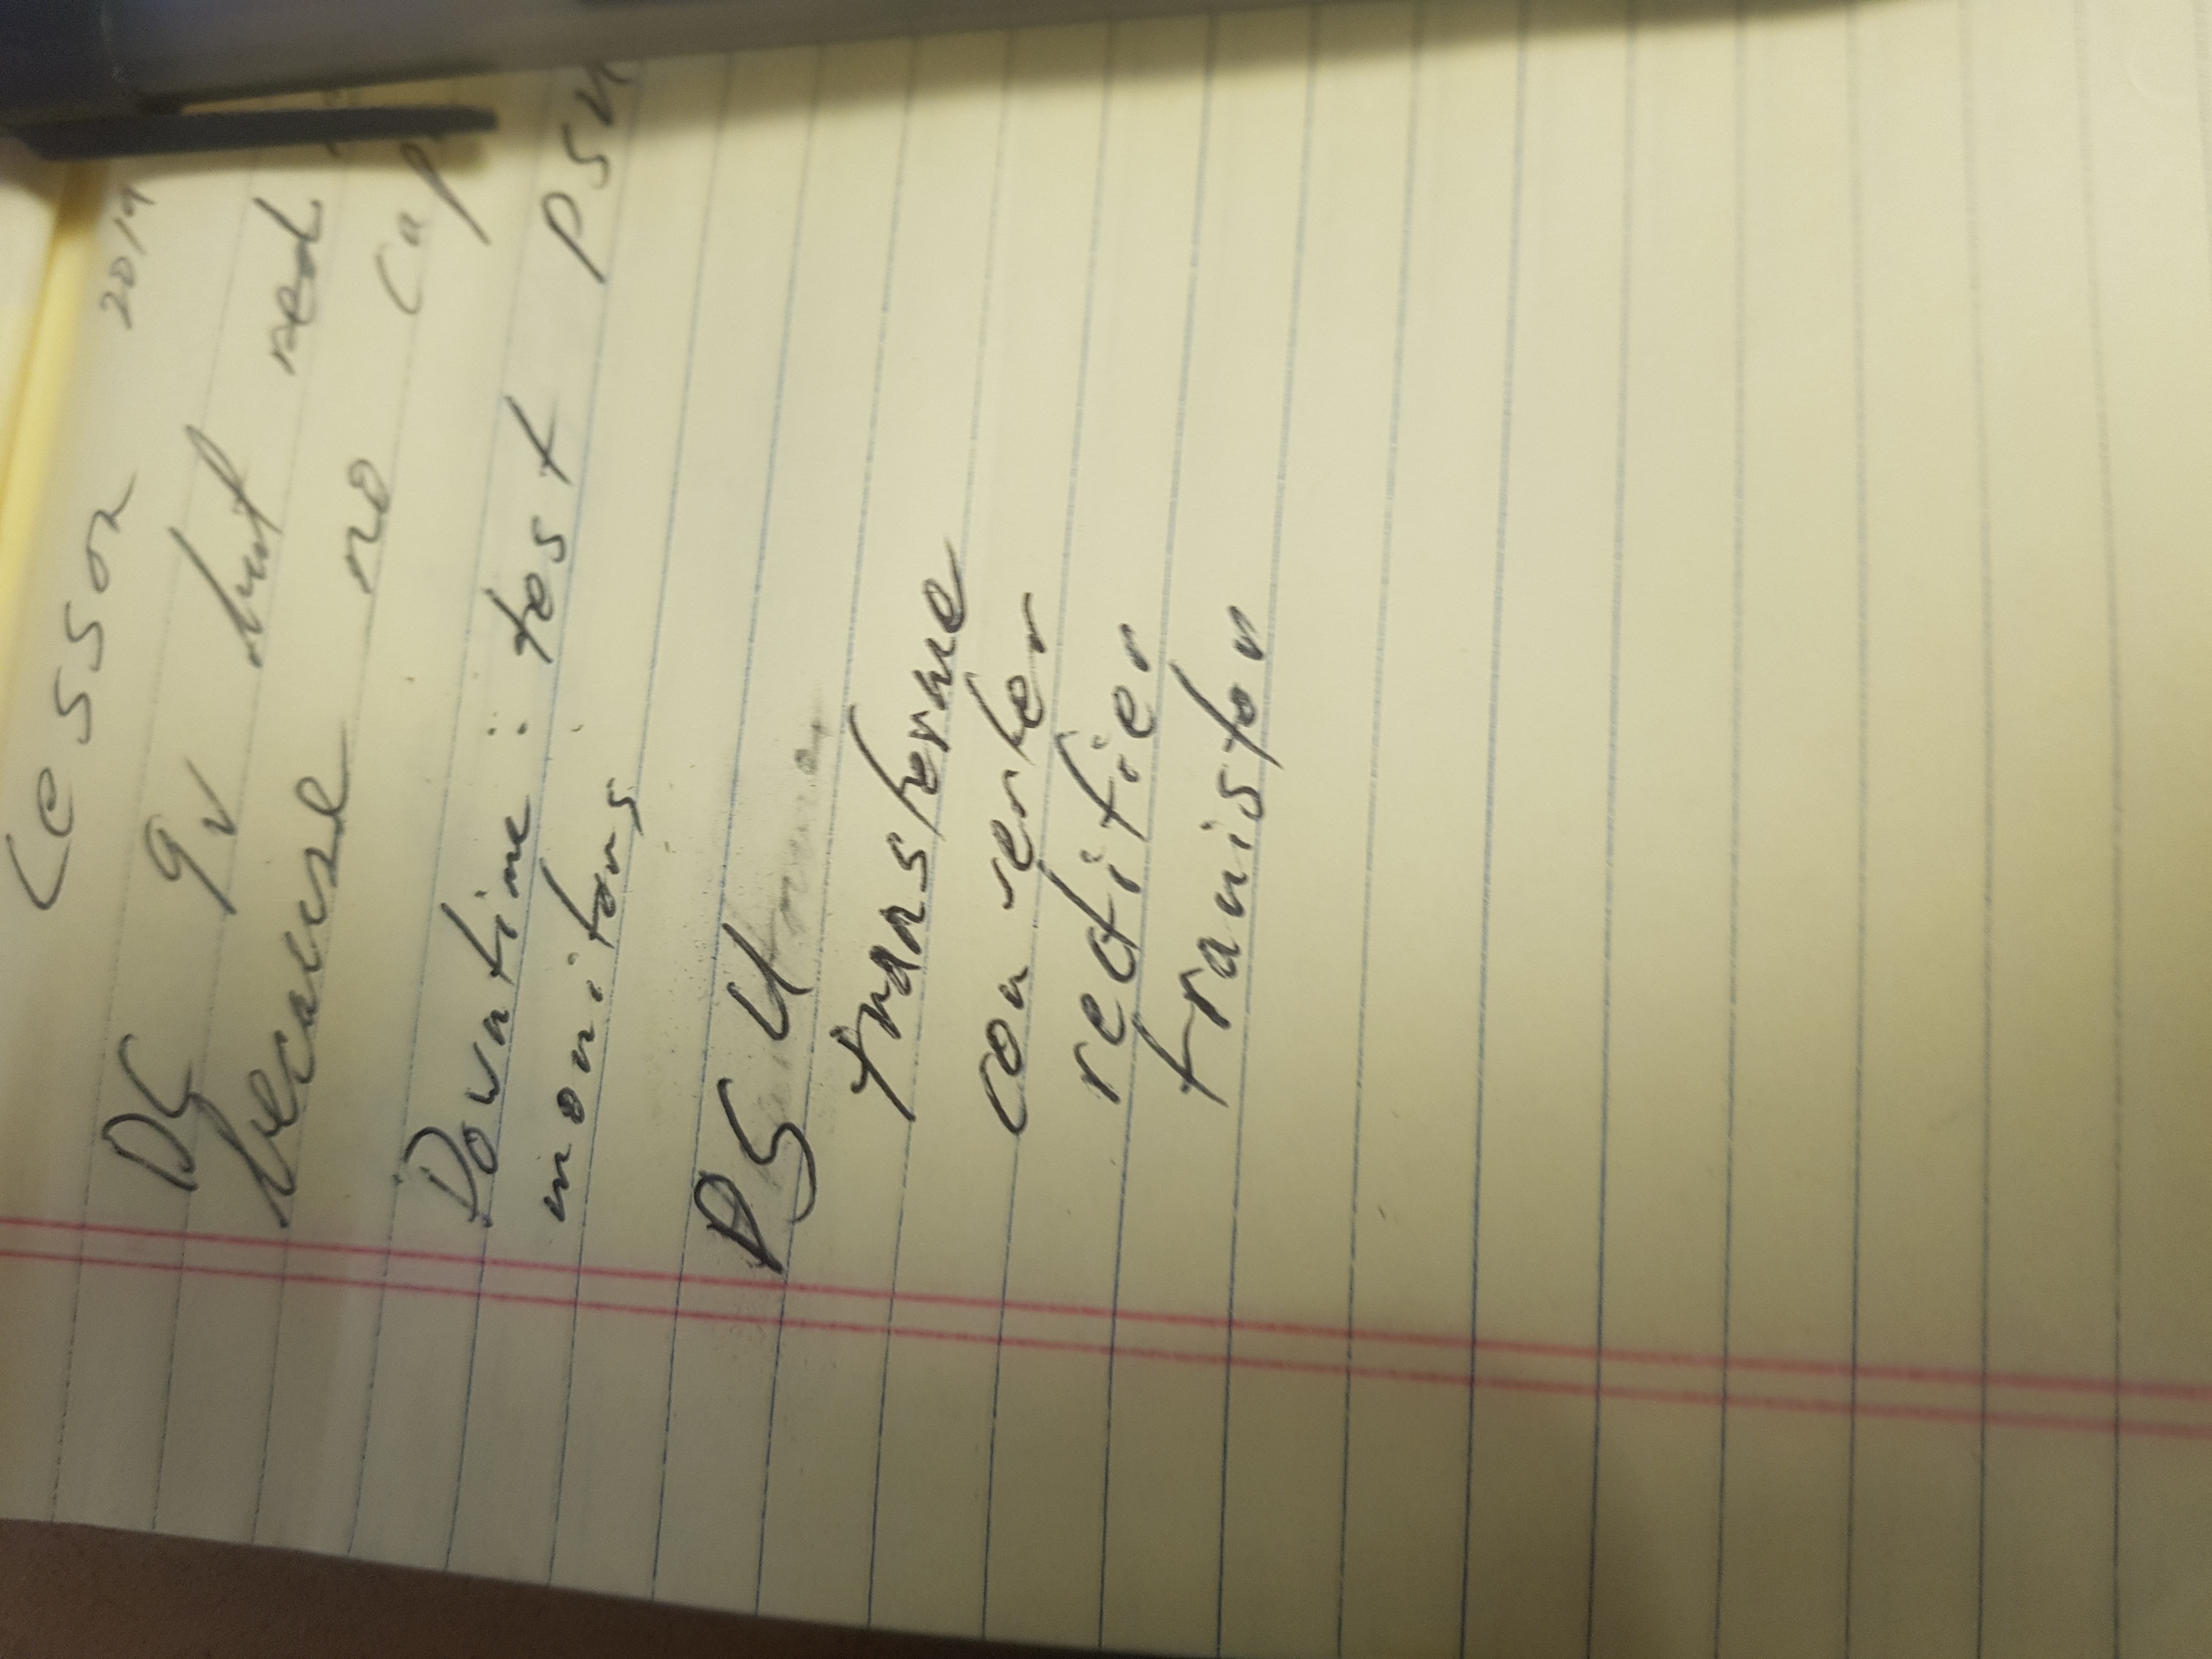 Lesson 2019
DC 9v but red
because no cap
Downtime: test PSU
monitors
PSU
transforme
converter
rectifier
tranistor